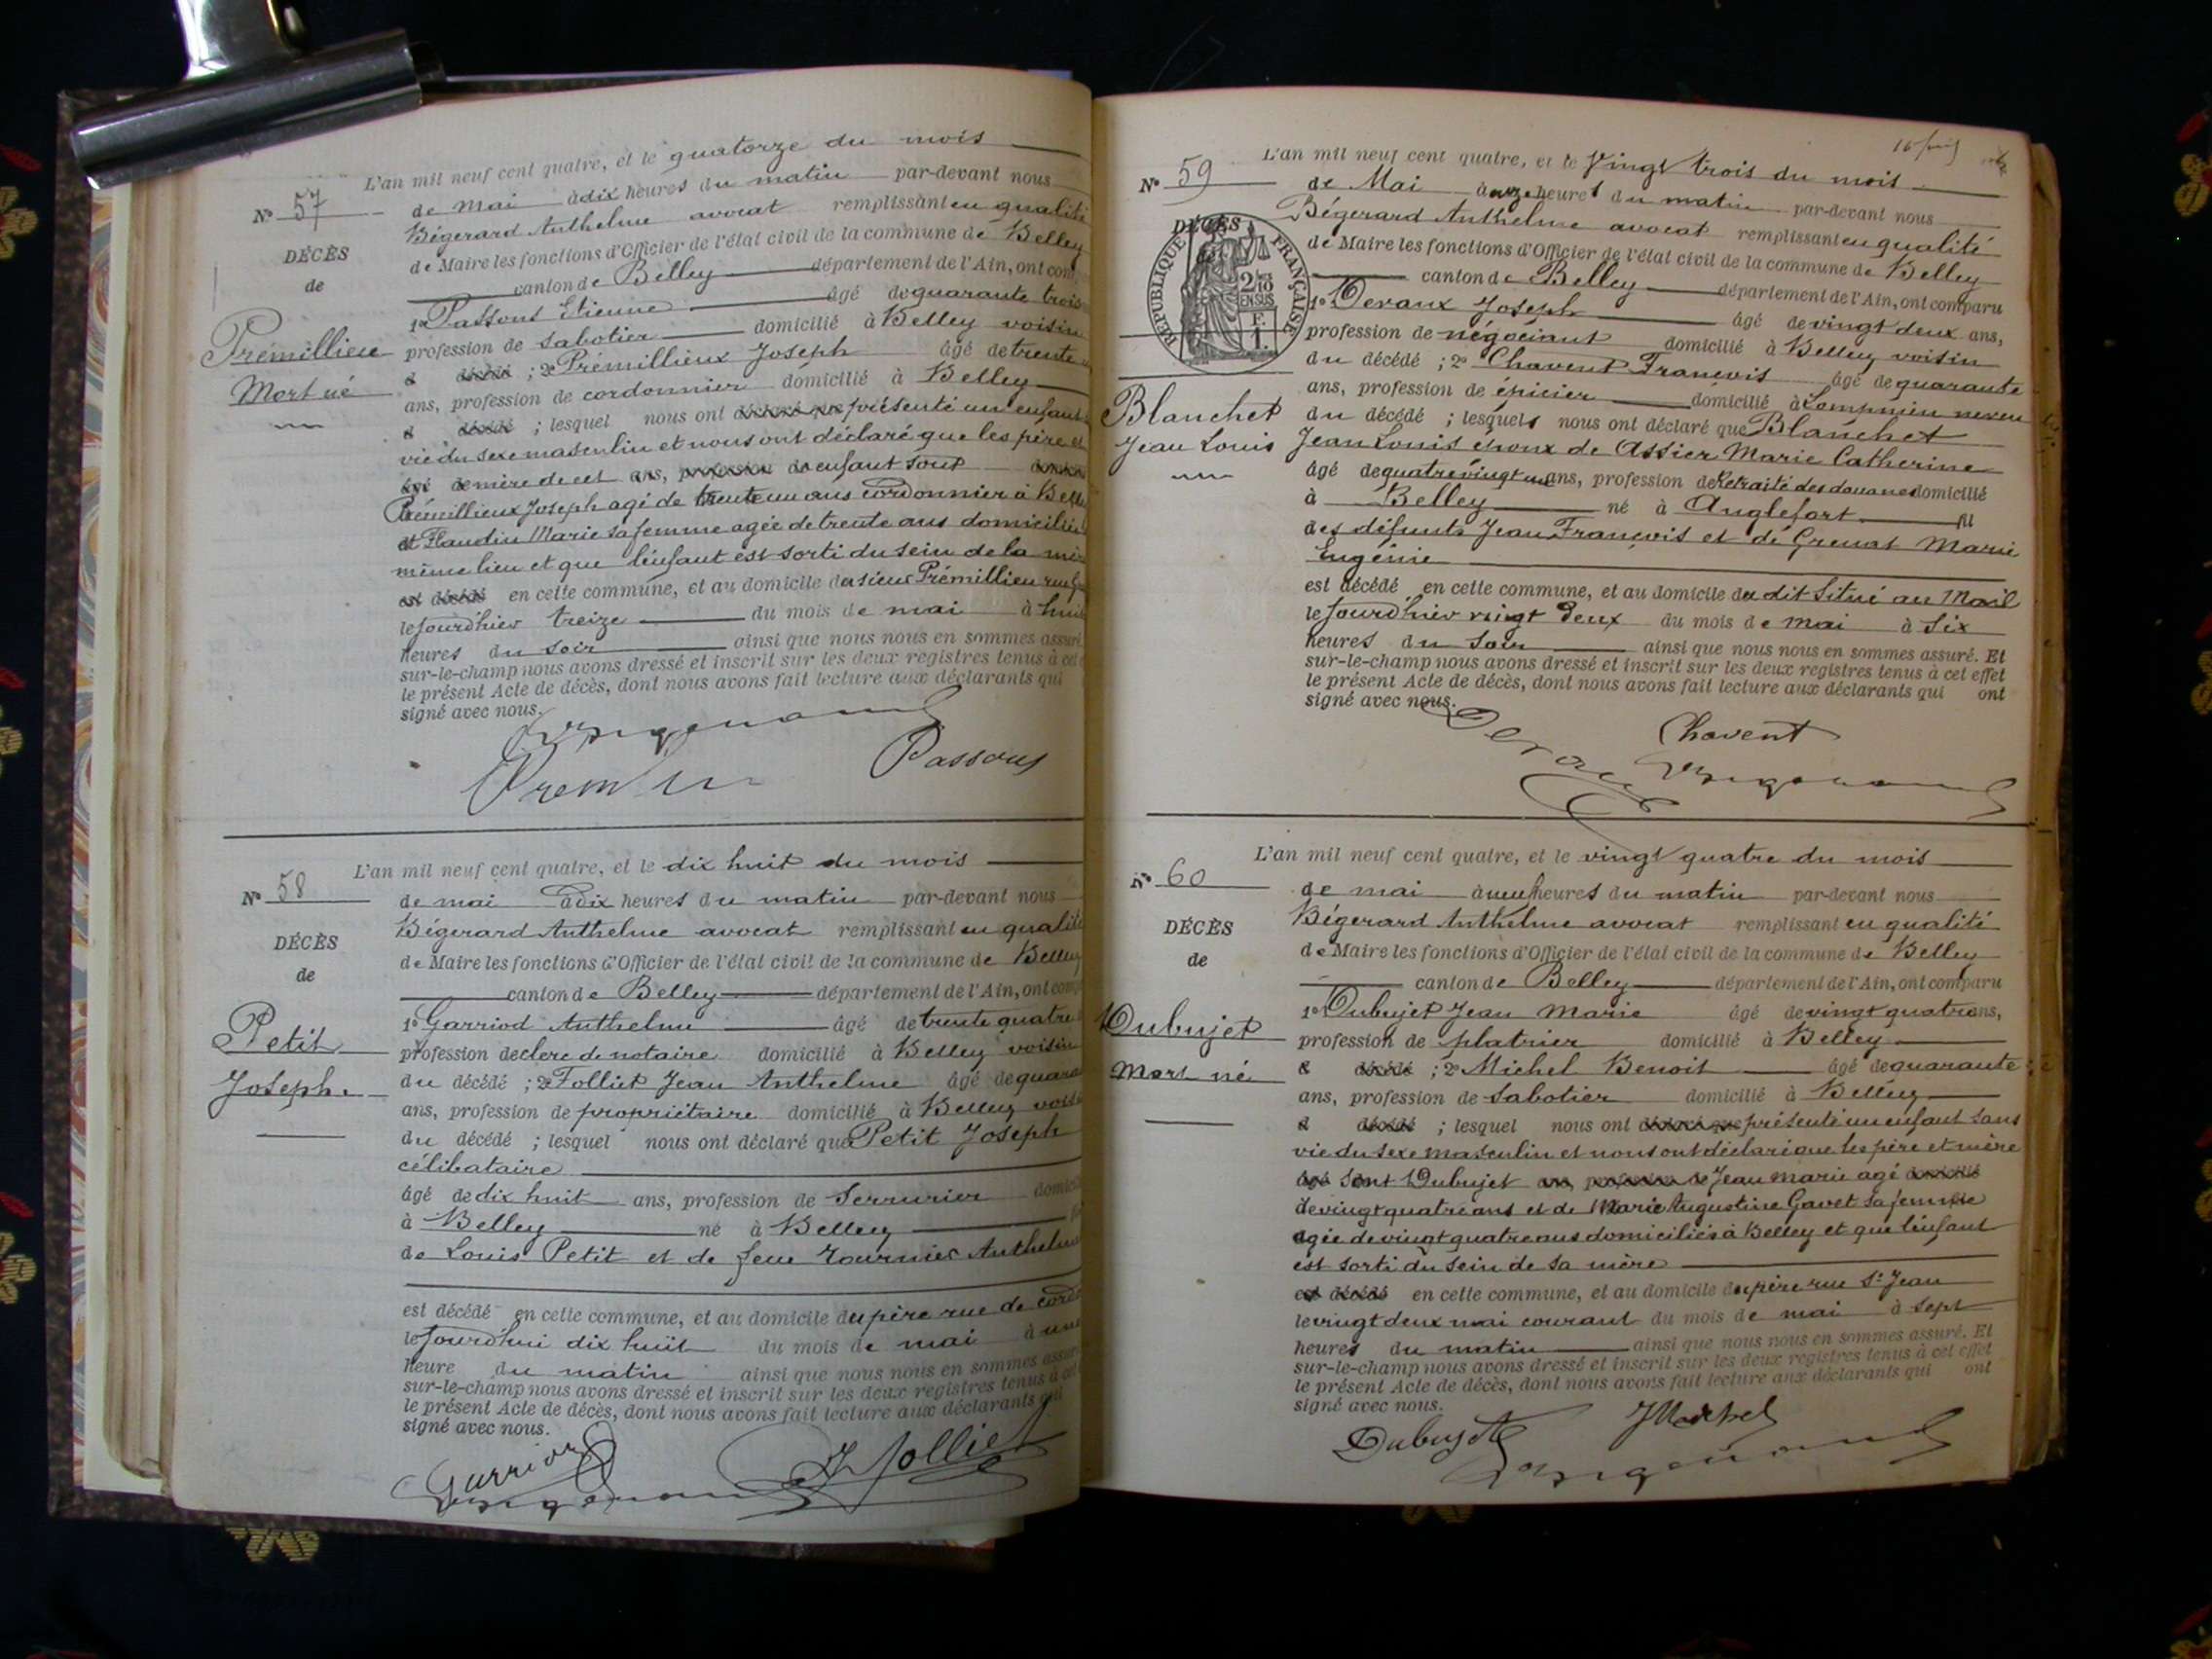 L'an mil neuf cent quatre, et le quatorze du mois
N° 57
de mai à dix heures du matin par-devant nous
Bégerard Anthelme avocat remplissant en qualité
de Maire les fonctions d'Officier de l'état civil de la commune de Belley
canton de Belley département de l'Ain, ont com
DÉCÈS
de
Prémillieu
Mort né
1° Passous Etienne âgé de quarante trois
profession de sabotier domicilié à Belley voisin
d décédé ; 2° Prémillieux Joseph âgé de trente
ans, profession de cordonnier domicilié à Belley
d décédé ; lesquel nous ont déclaré que présenté un enfant
vie du sexe masculin et nous ont déclaré que les père et
âgé de mère de cet ans, profession de enfant sont
Prémillieux Joseph agé de trente un ans cordonnier à Belle
et Flaudin Marie sa femme agée de trente ans domiciliés
même lieu et que l'enfant est sorti du sein de la
est décédé en cette commune, et au domicile du sieur Prémillieu rue
le jourd'hier treize du mois de mai à huit
heures du soir ainsi que nous nous en sommes assuré
sur-le-champ nous avons dressé et inscrit sur les deux registres tenus à cet
le présent Acte de décès, dont nous avons fait lecture aux déclarants qui
signé avec nous.
Passous
L'an mil neuf cent quatre, et le dix huit du mois
N° 58
de mai à dix heures du matin par-devant nous
Bégerard Anthelme avocat remplissant en qualité
de Maire les fonctions d'Officier de l'état civil de la commune de Belley
canton de Belley département de l'Ain, ont comp
DÉCÈS
de
Petit
Joseph.
1° Garriod Anthelme âgé de trente quatre
profession de clerc de notaire domicilié à Belley voisin
du décédé ; 2° Folliet Jean Anthelme âgé de quara
ans, profession de propriétaire domicilié à Belley voisi
du décédé ; lesquel nous ont déclaré que Petit Joseph
célibataire
âgé de dix huit ans, profession de Serrurier domicil
à Belley né à Belley
de Louis Petit et de feue Tournier Anthelm
est décédé en cette commune, et au domicile du père rue de
le jourd'hui dix huit du mois de mai à une
heure du matin ainsi que nous nous en sommes assur
sur-le-champ nous avons dressé et inscrit sur les deux registres tenus à cet
le présent Acte de décès, dont nous avons fait lecture aux déclarants qui
signé avec nous.
Garriod
J Folliet
L'an mil neuf cent quatre, et le Vingt trois du mois
N° 59
de Mai à onze heures du matin par-devant nous
Bégerard Anthelme avocat remplissant en qualité
de Maire les fonctions d'Officier de l'état civil de la commune de Belley
canton de Belley département de l'Ain, ont comparu
DÉCÈS
RÉPUBLIQUE FRANÇAISE
2/10 EN SUS
F. 1.
Blanchet
Jean Louis
1° Devaux Joseph âgé de vingt deux ans,
profession de négociant domicilié à Belley voisin
du décédé ; 2° Chavent François âgé de quarante
ans, profession de épicier domicilié à Lompnieu neveu
du décédé ; lesquels nous ont déclaré que Blanchet
Jean Louis époux de Assier Marie Catherine
âgé de quatre vingt un ans, profession de Retraité des douanes domicilié
à Belley né à Anglefort fil
des défunts Jean François et de Grenat Marie
Eugénie
est décédé en cette commune, et au domicile du dit situé au Mail
le jourd'hier vingt deux du mois de mai à six
heures du soir ainsi que nous nous en sommes assuré. Et
sur-le-champ nous avons dressé et inscrit sur les deux registres tenus à cet effet
le présent Acte de décès, dont nous avons fait lecture aux déclarants qui ont
signé avec nous.
Devaux Chavent
L'an mil neuf cent quatre, et le vingt quatre du mois
N° 60
de mai à neuf heures du matin par-devant nous
Bégerard Anthelme avocat remplissant en qualité
de Maire les fonctions d'Officier de l'état civil de la commune de Belley
canton de Belley département de l'Ain, ont comparu
DÉCÈS
de
Dubujet
Mort né
1° Dubujet Jean Marie âgé de vingt quatre ans,
profession de platrier domicilié à Belley
d décédé ; 2° Michel Benoit âgé de quarante
ans, profession de Sabotier domicilié à Belley
d décédé ; lesquel nous ont déclaré que présenté un enfant sans
vie du sexe masculin et nous ont déclaré que les père et mère
âgé sont Dubujet ans, profession de Jean marie agé domicilié
de vingt quatre ans et de Marie Augustine Gavet sa femme
agée de vingt quatre ans domiciliés à Belley et que l'enfant
est sorti du sein de sa mère
est décédé en cette commune, et au domicile du père rue St Jean
le vingt deux mai courant du mois de mai à sept
heures du matin ainsi que nous nous en sommes assuré. Et
sur-le-champ nous avons dressé et inscrit sur les deux registres tenus à cet effet
le présent Acte de décès, dont nous avons fait lecture aux déclarants qui ont
signé avec nous.
Dubujet Michel